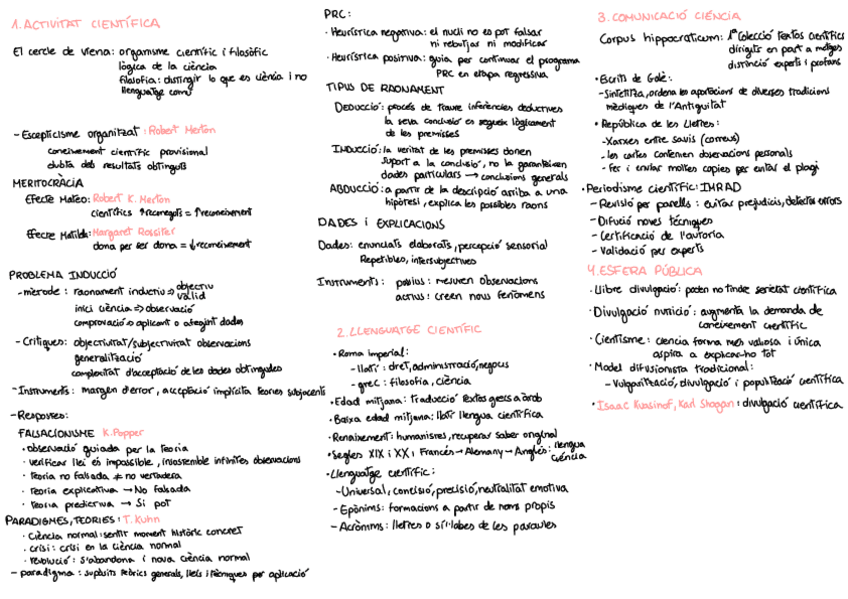 1. ACTIVITAT CIENTÍFICA
El cercle de Viena: organisme científic i filosòfic
lògica de la ciència
filosofia: distingir lo que es ciència i no
llenguatge comú
- Escepticisme organitzat: Robert Merton
coneixement científic provisional
dubta dels resultats obtinguts
MERITOCRÀCIA
Efecte Mateo: Robert K. Merton
científics ↑reconeguts = ↑reconeixement
Efecte Matilda: Margaret Rossiter
dona per ser dona = ↓reconeixement
PROBLEMA INDUCCIÓ
- mètode: raonament inductiu ⇒ objectiu
vàlid
inici ciència ⇒ observació
comprovació ⇒ aplicant o afegint dades
- Crítiques: objectivitat/subjectivitat observacions
generalització
complexitat d'acceptació de les dades obtingudes
- Instruments: marge d'error, acceptació implícita teories subjacents
- Respostes:
FALSACIONISME K. Popper
· observació guiada per la teoria
· verificar llei és impossible, insostenible infinites observacions
· teoria no falsada ≠ no vertadera
· teoria explicativa → No falsada
· teoria predictiva → Si pot
PARADIGMES, TEORIES: T. Kuhn
· Ciència normal: sentit moment històric concret
· crisi: crisi en la ciència normal
· revolució: s'abandona i nova ciència normal
- paradigma: supòsits teòrics generals, lleis i tècniques per aplicació
PRC:
· Heurística negativa: el nucli no es pot falsar
ni rebutjar ni modificar
· Heurística positiva: guia per continuar el programa
PRC en etapa regressiva
TIPUS DE RAONAMENT
DEDUCCIÓ: procés de traure inferències deductives
la seva conclusió es segueix lògicament
de les premisses
INDUCCIÓ: la veritat de les premisses donen
suport a la conclusió, no la garanteixen
dades particulars → conclusions generals
ABDUCCIÓ: a partir de la descripció arriba a una
hipòtesi, explica les possibles raons
DADES I EXPLICACIONS
Dades: enunciats elaborats, percepció sensorial
Repetibles, intersubjectives
Instruments: passius: mesuren observacions
actius: creen nous fenòmens
2. LLENGUATGE CIENTÍFIC
· Roma Imperial:
- llatí: dret, administració, negocis
- grec: filosofia, ciència
· Edad mitjana: traducció textos grecs a àrab
· Baixa edad mitjana: llatí llengua científica
· Renaixement: humanistes, recuperar saber original
· Segles XIX i XX: Francès → Alemany → Anglès: llengua
ciència
· Llenguatge científic:
- Universal, concisió, precisió, neutralitat emotiva
- Epònims: formacions a partir de noms propis
- Acrònims: lletres o síl·labes de les paraules
3. COMUNICACIÓ CIÈNCIA
Corpus hippocraticum: 1ª Col·lecció textos científics
dirigits en part a metges
distinció experts i profans
· Escrits de Galè:
- Sintetitza, ordena les aportacions de diverses tradicions
mèdiques de l'Antiguitat
· República de les Lletres:
- Xarxes entre savis (correus)
- les cartes contenien observacions personals
- Fer i enviar moltes copies per evitar el plagi
· Periodisme científic: IMRAD
- Revisió per parells: evitar prejudicis, detectar errors
- Difució noves tècniques
- Certificació de l'autoria
- Validació per experts
4. ESFERA PÚBLICA
· Llibre divulgació: poden no tindre serietat científica
· Divulgació nutrició: augmenta la demanda de
coneixement científic
· Cientisme: ciencia forma més valiosa i única
aspira a explicar-ho tot
· Model difusionista tradicional:
- Vulgarització, divulgació i popularització científica
· Isaac Kuasinof, Karl Shagan: divulgació científica